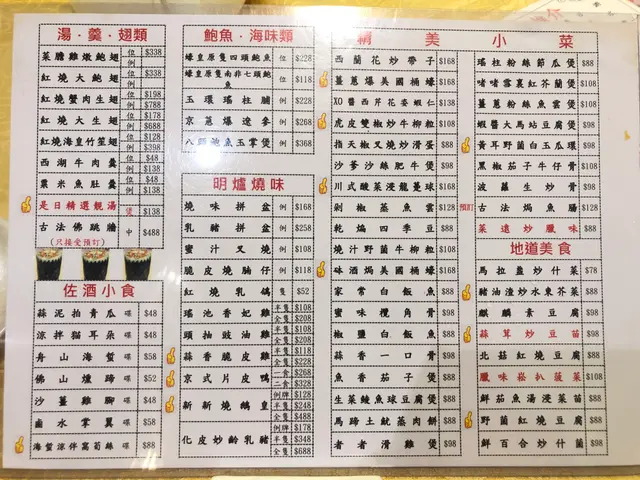 湯．羹．翅類
菜膽雞燉鮑翅 位 $338
紅燒大鮑翅 位 $338
例
紅燒蟹肉生翅 位 $198
例 $788
紅燒大生翅 位 $178
例 $688
紅燒海皇竹笙翅 位 $128
例 $398
西湖牛肉羹 位 $48
例 $138
粟米魚肚羹 位 $48
例 $138
是日精選靚湯 煲 $138
古法佛跳牆 中 $488
(只接受預訂)
佐酒小食
蒜泥拍青瓜 碟 $48
涼拌貓耳朵 碟 $48
舟山海蜇 碟 $58
佛山燻蹄 碟 $52
沙薑雞腳 碟 $48
鹵水掌翼 碟 $58
海蜇涼伴萵筍絲 碟 $88
鮑魚．海味類
蠔皇原隻四頭鮑魚 位 $228
蠔皇原隻南非七頭鮑魚 位 $118
玉環瑤柱脯 例 $128
京蔥爆遼參 例 $268
八頭鮑魚玉掌煲 例 $368
明爐燒味
燒味拼盆 例 $168
乳豬拼盆 例 $258
蜜汁叉燒 例 $108
脆皮燒腩仔 例 $118
紅燒乳鴿 隻 $52
瑤池香妃雞 半隻 $108
全隻 $208
頭抽豉油雞 半隻 $108
全隻 $208
蒜香脆皮雞 半隻 $118
全隻 $228
京式片皮鴨 一食 $268
二食 $328
新新燒鵝皇 例牌 $128
半隻 $248
全隻 $488
化皮妙齡乳豬 例牌 $178
半隻 $348
全隻 $688
精美小菜
西蘭花炒帶子 $168
薑蔥爆美國桶蠔 $168
XO醬西芹花姿蝦仁 $138
虎皮雙椒炒牛柳粒 $108
指天椒叉燒炒滑蛋 $88
沙爹沙絲肥牛煲 $98
川式酸菜浸龍躉球 $168
剁椒蒸魚雲 $128
乾煸四季豆 $88
燒汁野菌牛柳粒 $108
味酒焗美國桶蠔 $168
家常白飯魚 $88
蜜味欖角骨 $98
椒鹽白飯魚 $88
蒜香一口骨 $98
魚香茄子煲 $98
生菜鯪魚球豆腐煲 $98
馬蹄土魷蒸肉餅 $88
者者滑雞煲 $98
瑤柱粉絲節瓜煲 $88
啫啫雪裏紅芥蘭煲 $108
薑蔥粉絲魚雲煲 $108
蝦醬大馬站豆腐煲 $98
黃耳野菌白玉瓜環 $98
黑椒茄子牛仔骨 $108
菠蘿生炒骨 $98
預訂 古法焗魚腸 $128
菜遠炒臘味 $88
地道美食
馬拉盞炒什菜 $78
豬油渣炒水東芥菜 $88
麒麟素豆腐 $98
蒜茸炒豆苗 $98
北菇紅燒豆腐 $88
臘味崧扒菠菜 $108
鮮茄魚湯浸菜苗 $88
野菌紅燒豆腐 $88
鮮百合炒什菌 $98